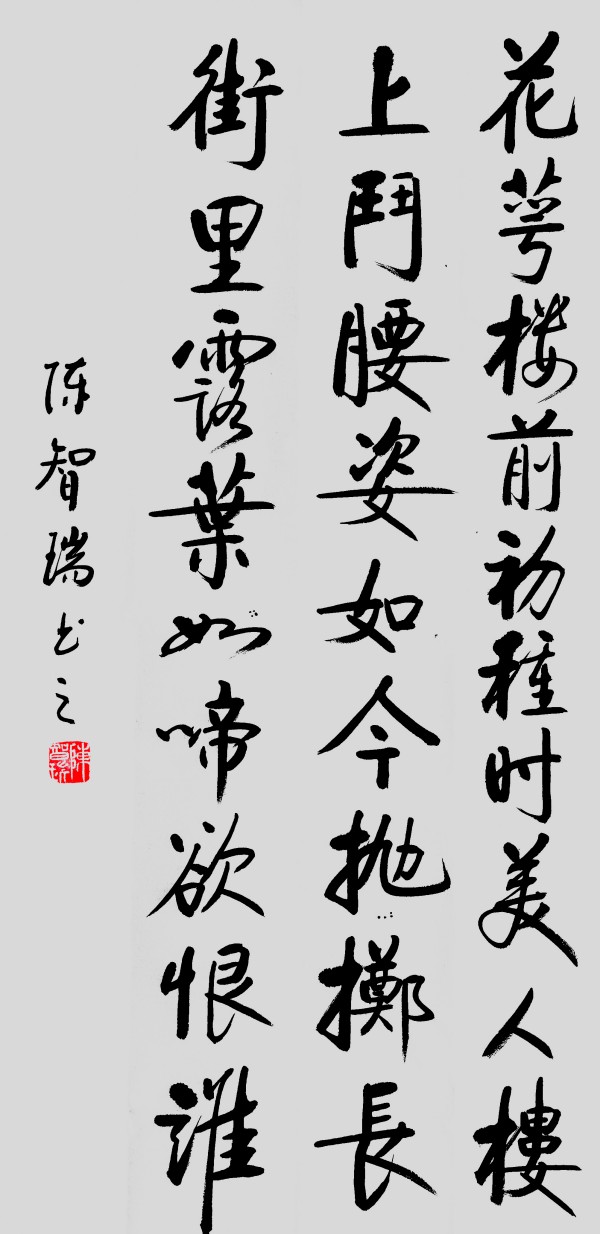 花萼楼前初種时美人樓
上鬥腰姿如今抛擲長
街里露葉如啼欲恨誰
陈智瑞书之